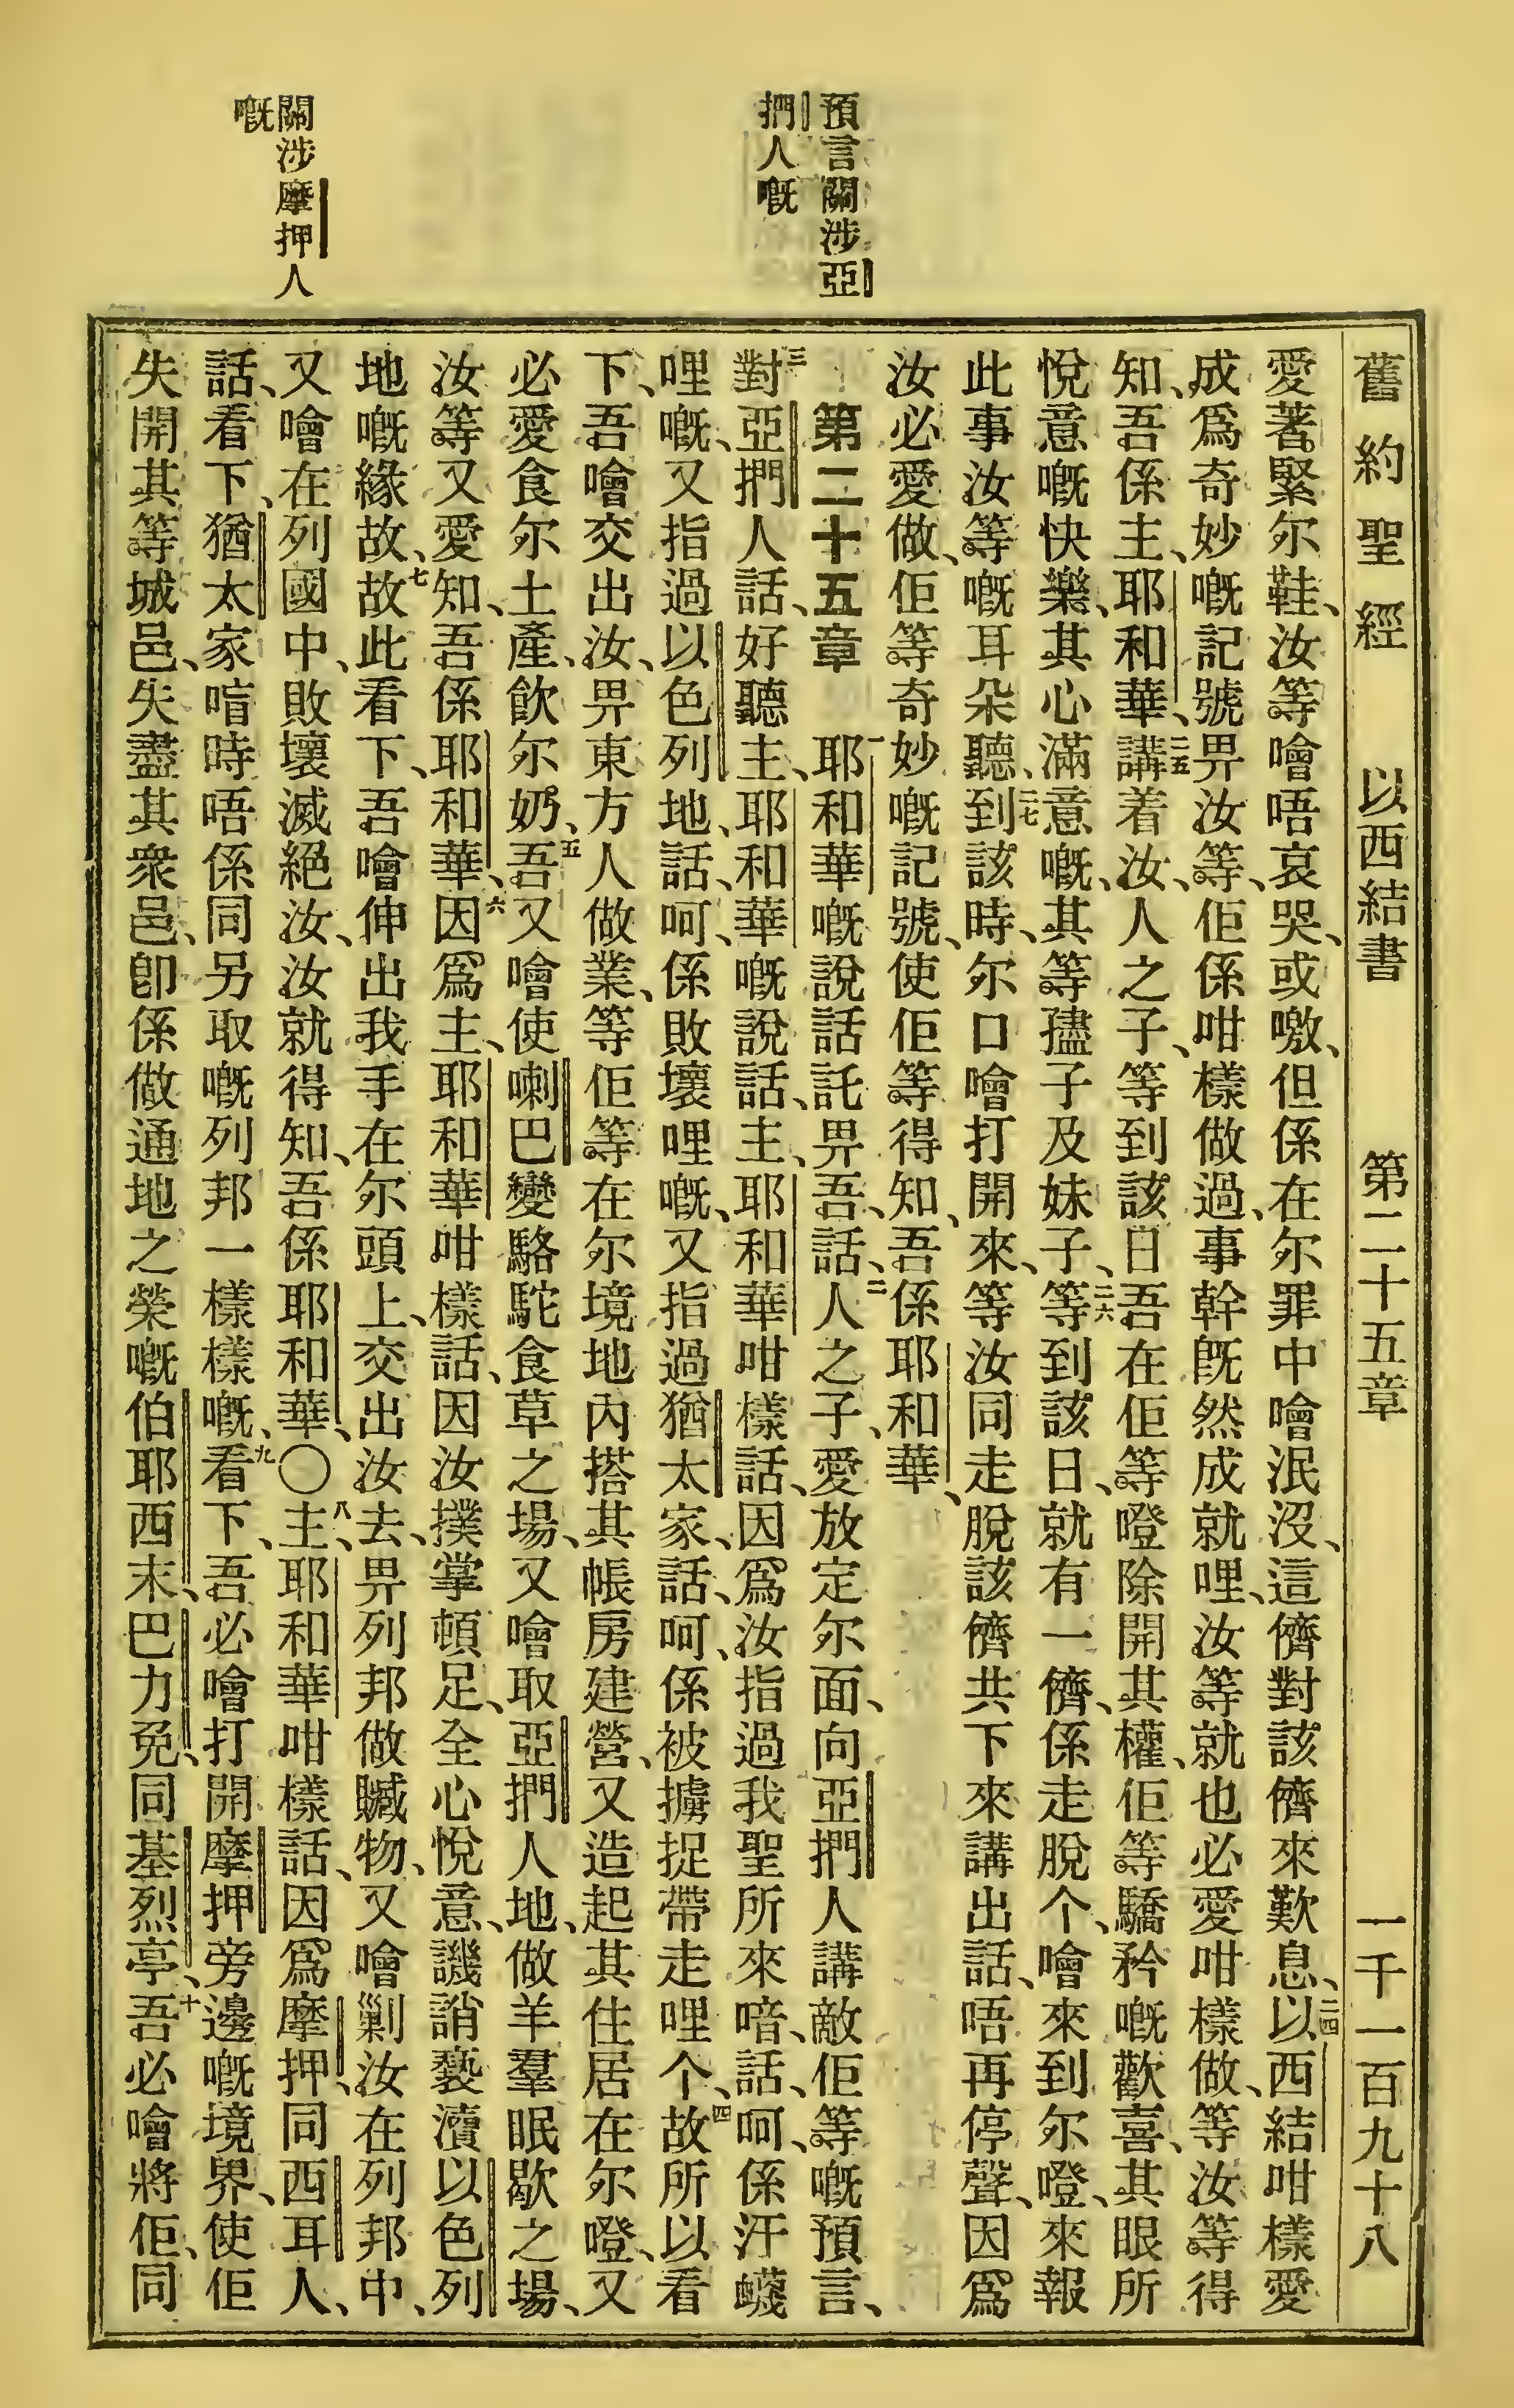 舊約聖經 以西結書 第二十五章 一千一百九十八
預言關涉亞
捫人嘅
關涉摩押人
嘅
愛著緊尔鞋、汝等噲唔哀哭、或噭、但係在尔罪中噲泯沒、這儕對該儕來歎息、二四以西結咁樣愛
成爲奇妙嘅記號畀汝等、佢係咁樣做過、事幹旣然成就哩、汝等就也必愛咁樣做、等汝等得
知、吾係主、耶和華、二五講着汝、人之子、等到該日吾在佢等嶝除開其權、佢等驕矜嘅歡喜、其眼所
悅意嘅快樂、其心滿意嘅、其等孻子及妹子、二六等到該日、就有一儕、係走脫个、噲來到尔嶝、來報
此事汝等嘅耳朵聽、二七到該時、尔口噲打開來、等汝同走脫該儕共下來講出話、唔再停聲、因爲
汝必愛做、佢等奇妙嘅記號、使佢等得知、吾係耶和華、
第二十五章 一耶和華嘅說話託畀吾、話、二人之子、愛放定尔面、向亞捫人講敵佢等嘅預言、
三對亞捫人話、好聽主、耶和華嘅說話、主、耶和華咁樣話、因爲汝指過我聖所來喑、話、呵、係汙衊
哩嘅、又指過以色列地、話、呵、係敗壞哩嘅、又指過猶太家、話、呵、係被擄捉帶走哩个、四故所以看
下、吾噲交出汝、畀東方人做業、等佢等在尔境地內搭其帳房建營、又造起其住居在尔嶝、又
必愛食尔土產、飲尔奶、五吾又噲使喇巴變駱駝食草之場、又噲取亞捫人地、做羊羣眠歇之場、
汝等又愛知、吾係耶和華、六因爲主、耶和華咁樣話、因汝撲掌頓足、全心悅意、譏誚褻瀆以色列
地嘅緣故、七故此看下、吾噲伸出我手在尔頭上、交出汝去、畀列邦做贓物、又噲剿汝在列邦中、
又噲在列國中、敗壞滅絕汝、汝就得知、吾係耶和華、〇八主、耶和華咁樣話、因爲摩押、同西耳人、
話、看下、猶太家喑時唔係同另取嘅列邦一樣樣嘅、九看下、吾必噲打開摩押旁邊嘅境界、使佢
失開其等城邑、失盡其衆邑、卽係做通地之榮嘅伯耶西末、巴力免、同基烈亭、十吾必噲將佢、同